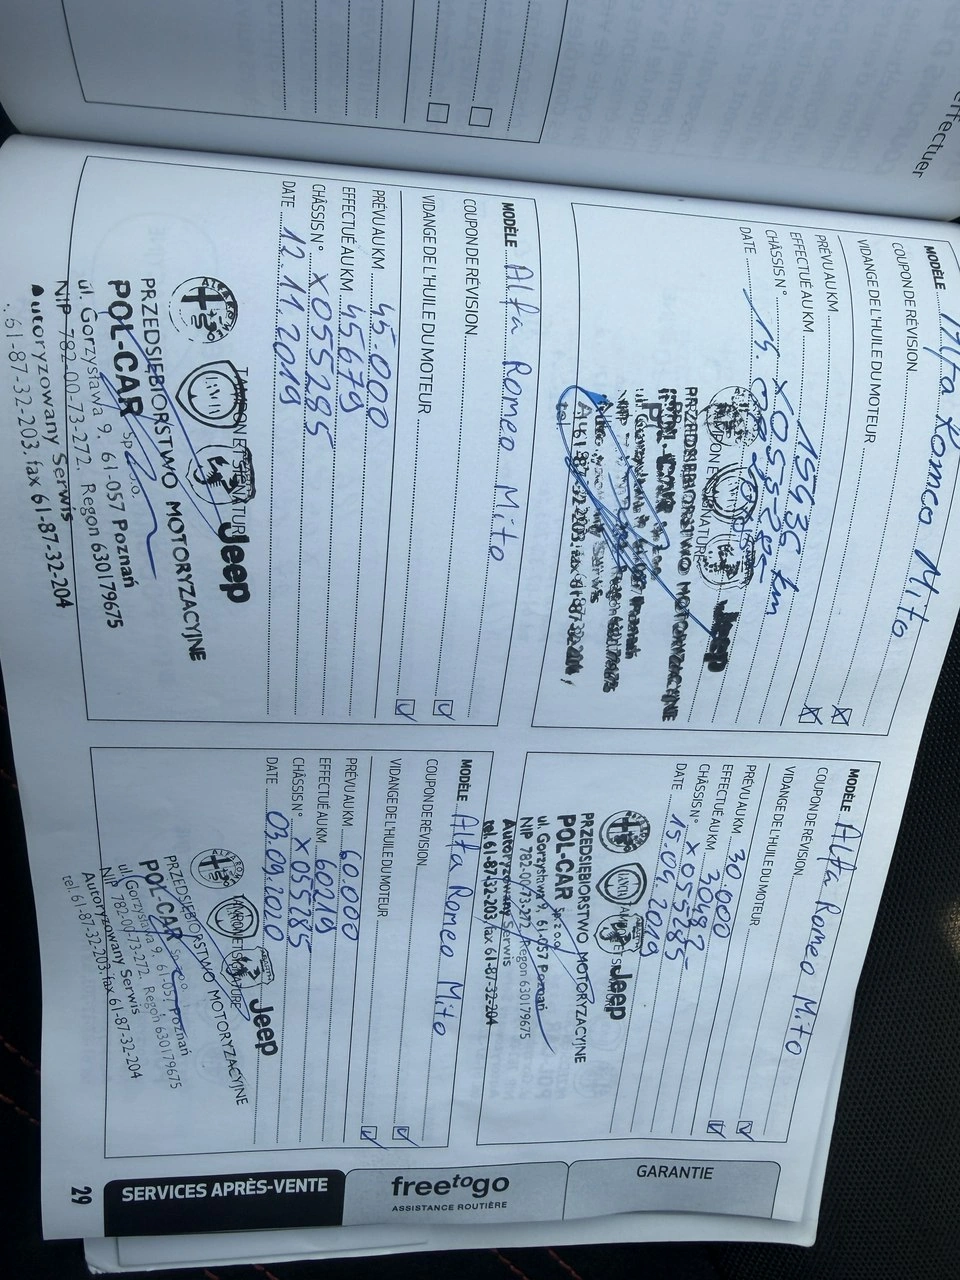 effectuer
MODÈLE Alfa Romeo Mito
COUPON DE RÉVISION
VIDANGE DE L'HUILE DU MOTEUR
PRÉVU AU KM
EFFECTUÉ AU KM 15935 km
CHÂSSIS N° X055285
DATE
Jeep
PRZEDSIEBIORSTWO MOTORYZACYJNE
POL-CAR
MODÈLE Alfa Romeo Mito
COUPON DE RÉVISION
VIDANGE DE L'HUILE DU MOTEUR
PRÉVU AU KM 30.000
EFFECTUÉ AU KM 30487
CHÂSSIS N° X055285
DATE 15.04.2019
Jeep
PRZEDSIEBIORSTWO MOTORYZACYJNE
POL-CAR Sp. z o.o.
ul. Gorzysława 9, 61-057 Poznań
NIP 782-00-73-272, Regon 630179675
Autoryzowany Serwis
tel. 61-87-32-203, fax 61-87-32-204
MODÈLE Alfa Romeo Mito
COUPON DE RÉVISION
VIDANGE DE L'HUILE DU MOTEUR
PRÉVU AU KM 45.000
EFFECTUÉ AU KM 45679
CHÂSSIS N° X055285
DATE 12.11.2019
TAMPON ET SIGNATURE
Jeep
PRZEDSIEBIORSTWO MOTORYZACYJNE
POL-CAR Sp. z o.o.
ul. Gorzysława 9, 61-057 Poznań
NIP 782-00-73-272, Regon 630179675
Autoryzowany Serwis
61-87-32-203, fax 61-87-32-204
MODÈLE Alfa Romeo Mito
COUPON DE RÉVISION
VIDANGE DE L'HUILE DU MOTEUR
PRÉVU AU KM 60.000
EFFECTUÉ AU KM 60219
CHÂSSIS N° X055285
DATE 03.09.2020
TAMPON ET SIGNATURE
Jeep
PRZEDSIEBIORSTWO MOTORYZACYJNE
POL-CAR Sp. z o.o.
ul. Gorzysława 9, 61-057 Poznań
NIP 782-00-73-272, Regon 630179675
Autoryzowany Serwis
tel. 61-87-32-203, fax 61-87-32-204
GARANTIE
freetogo
ASSISTANCE ROUTIÈRE
SERVICES APRÈS-VENTE
29